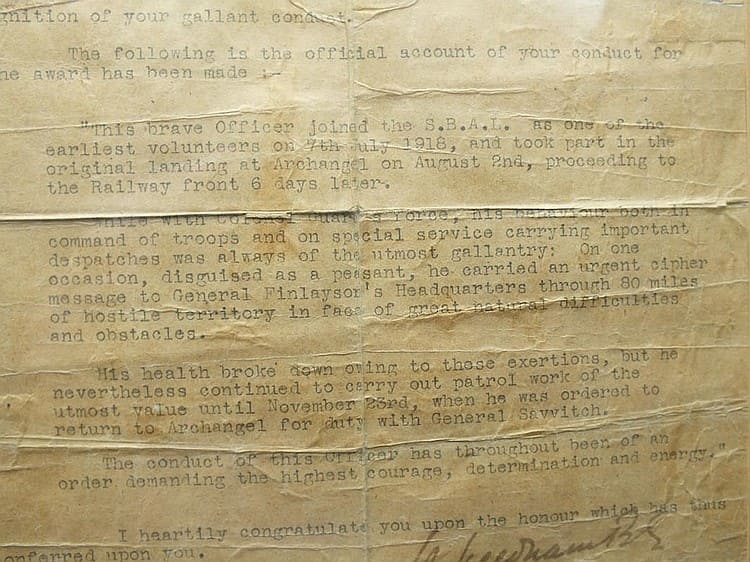 gnition of your gallant conduct.
The following is the official account of your conduct for
he award has been made :-
"This brave Officer joined the S.B.A.L. as one of the
earliest volunteers on 7th July 1918, and took part in the
original landing at Archangel on August 2nd, proceeding to
the Railway front 6 days later.
While with Colonel Guard's Force, his behaviour both in
command of troops and on special service carrying important
despatches was always of the utmost gallantry: On one
occasion, disguised as a peasant, he carried an urgent cipher
message to General Finlayson's Headquarters through 80 miles
of hostile territory in face of great natural difficulties
and obstacles.
His health broke down owing to these exertions, but he
nevertheless continued to carry out patrol work of the
utmost value until November 23rd, when he was ordered to
return to Archangel for duty with General Savvitch.
The conduct of this Officer has throughout been of an
order demanding the highest courage, determination and energy."
I heartily congratulate you upon the honour which has thus
onferred upon you.